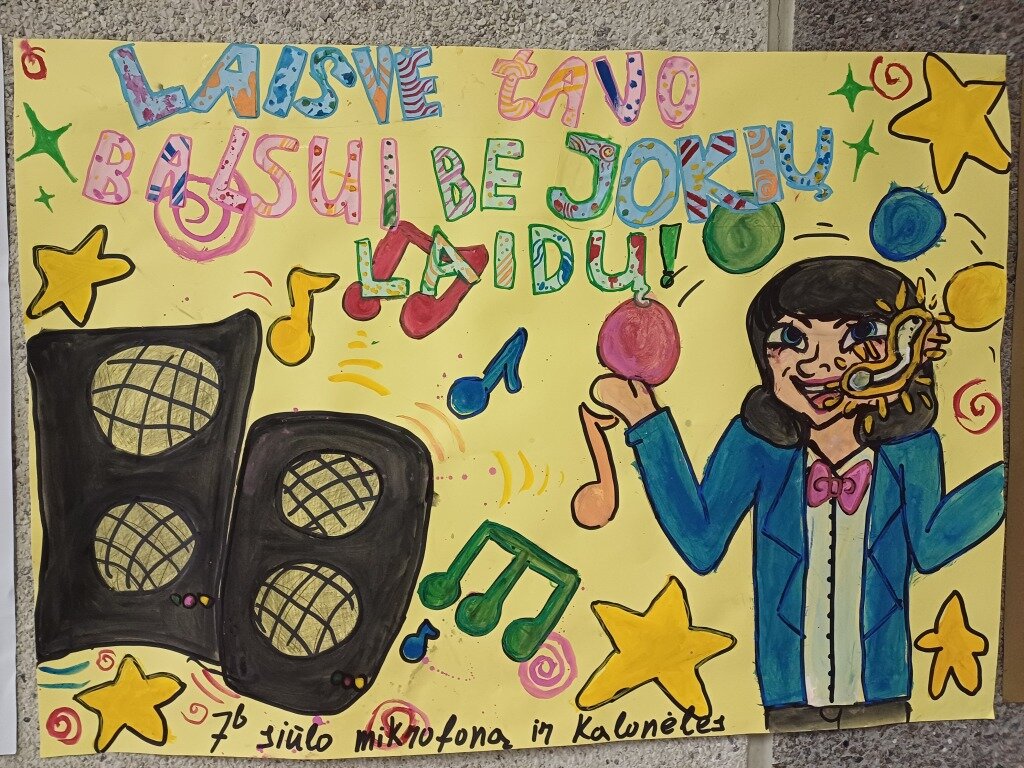 LAISVE tAVO
BALSUI BE JOKIŲ
LAIDU!
7b siūlo mikrofoną ir Kalonėles